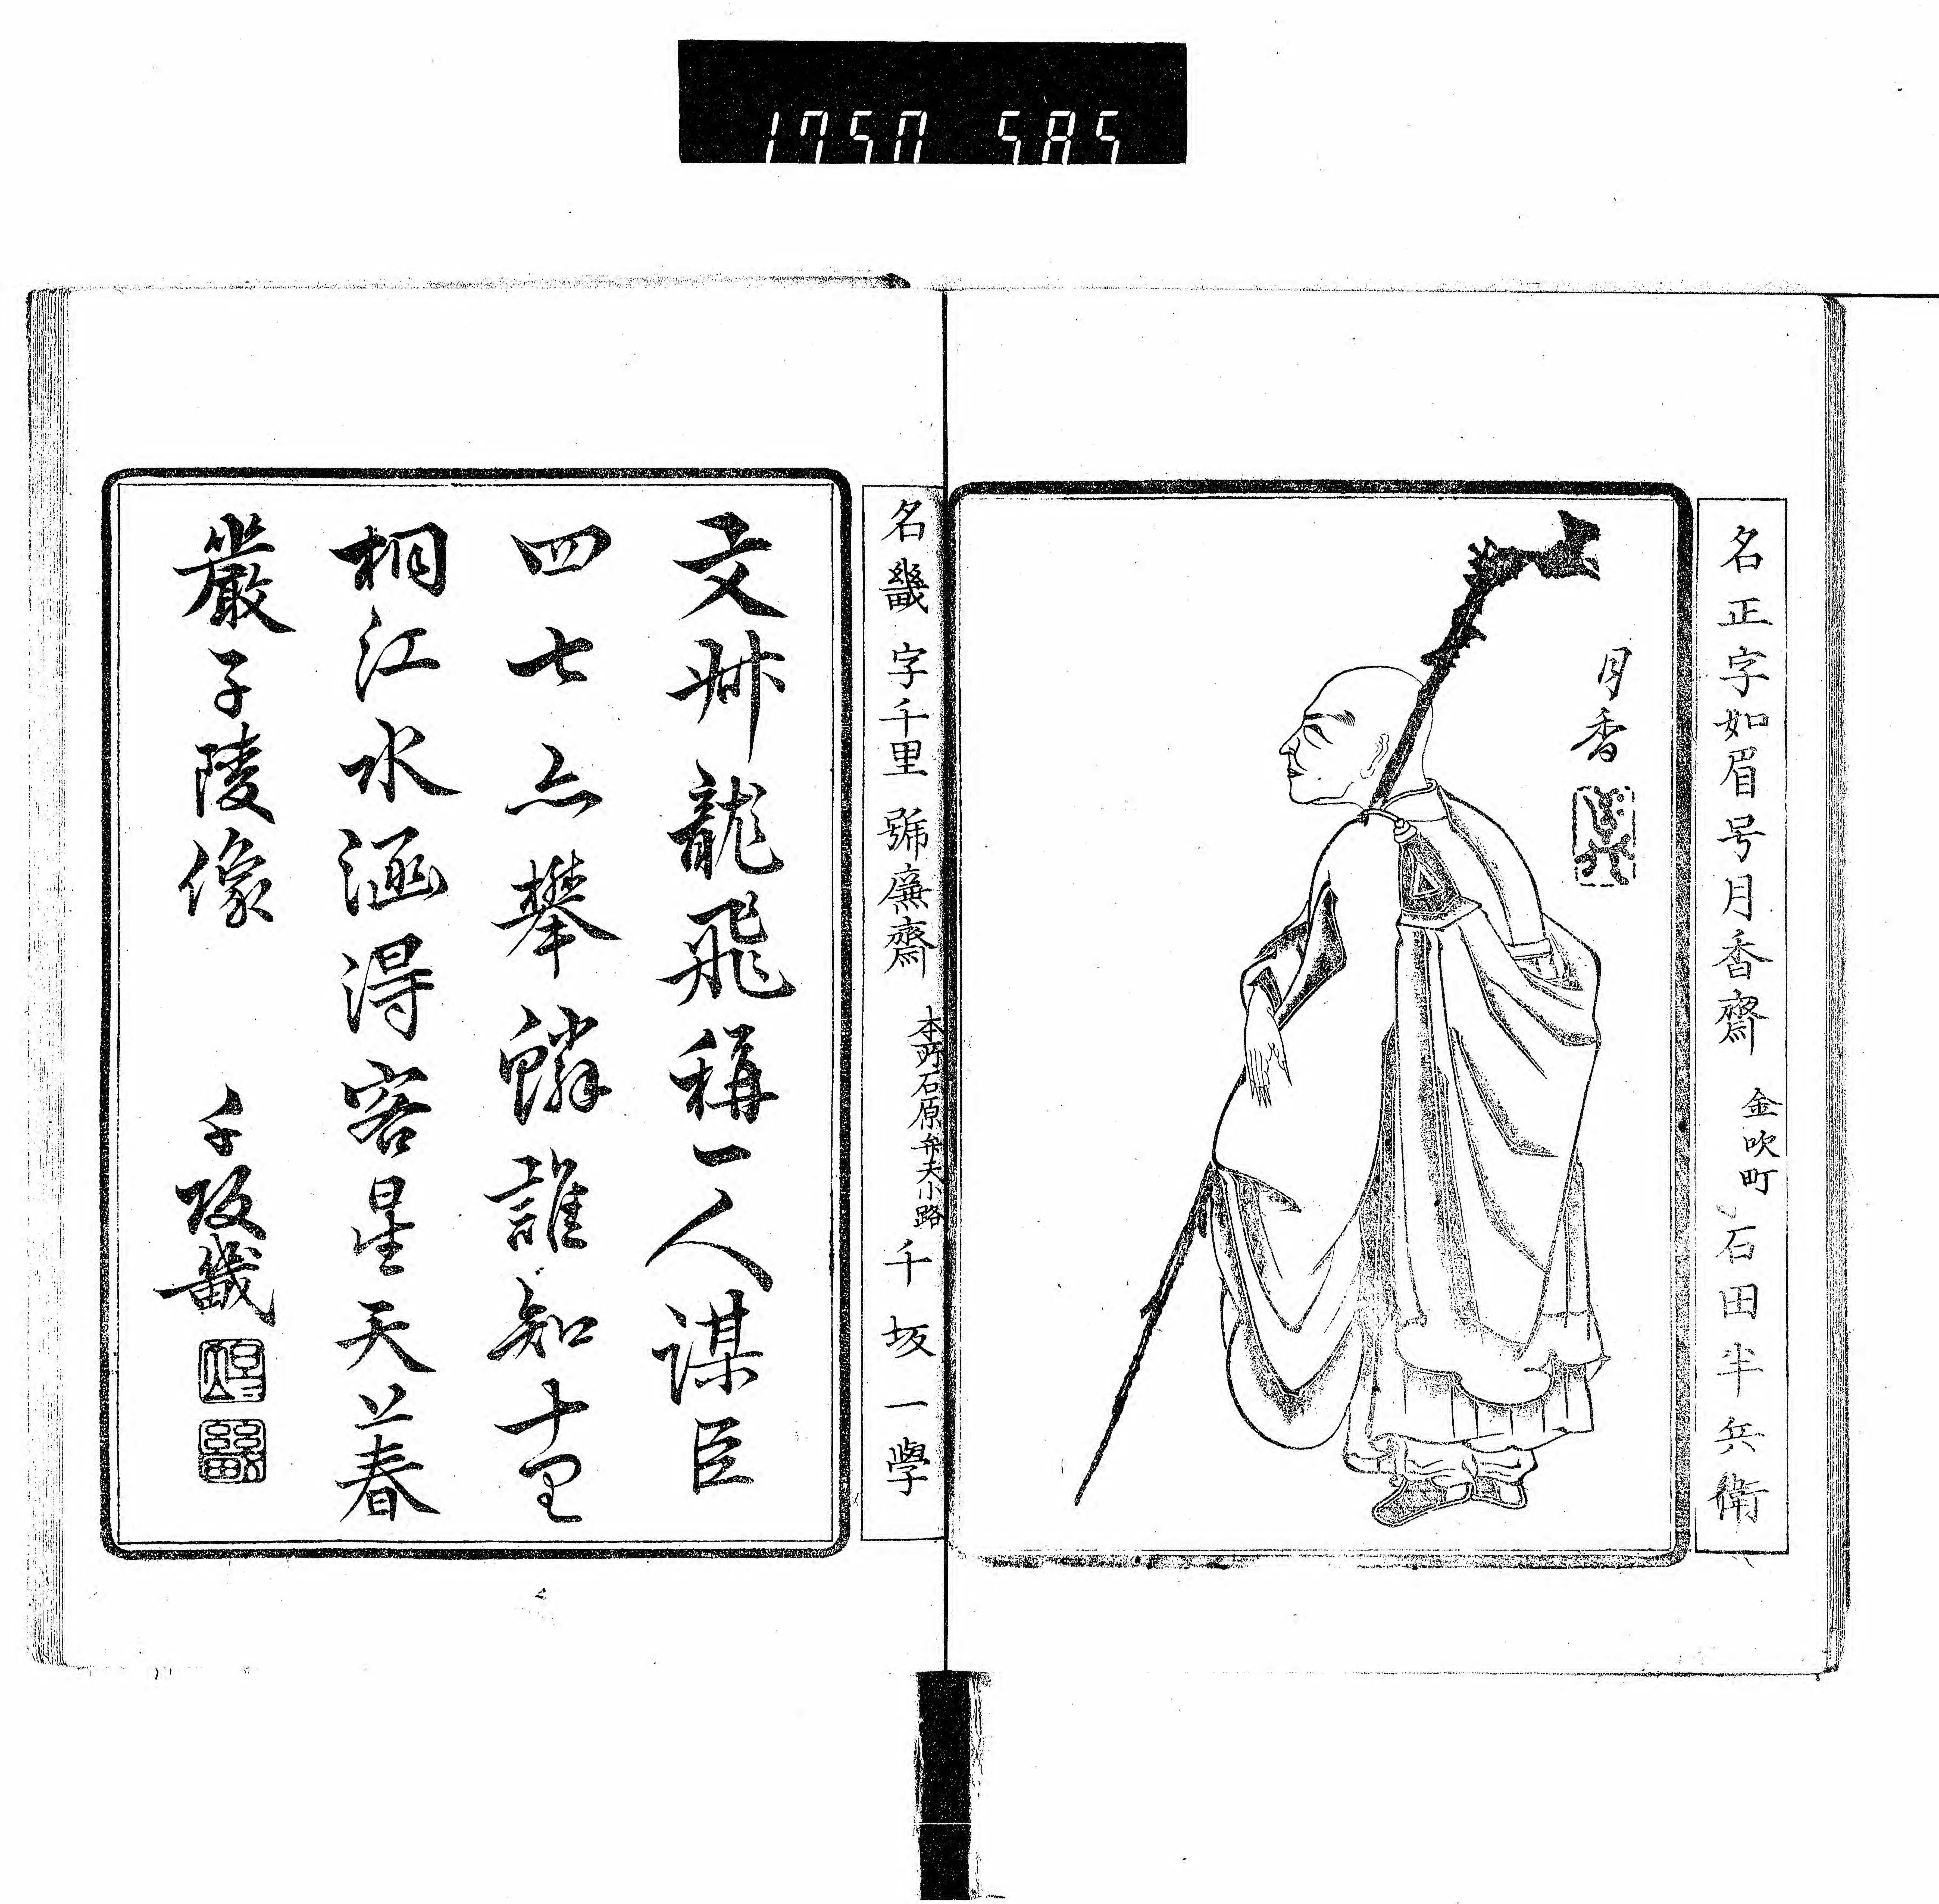 1750 585
名正字如眉号月香齋 金吹町 石田半兵衛
月香
名畿 字千里 號廉齋 本所石原弁天小路 千坂一學
文叔龍飛稱一人謀臣
四七亦攀鱗誰知十里
桐江水涵得客星天上春
嚴子陵像 千坂畿